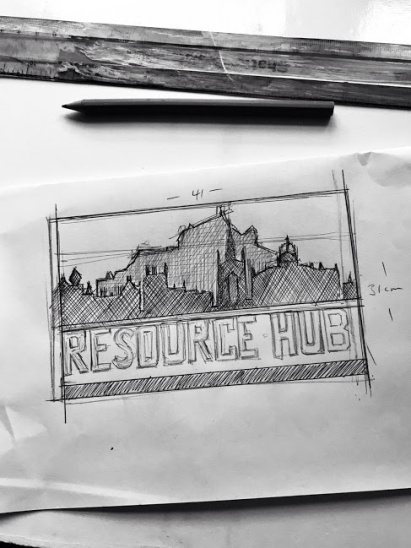 — 41 —
31cm
RESOURCE HUB